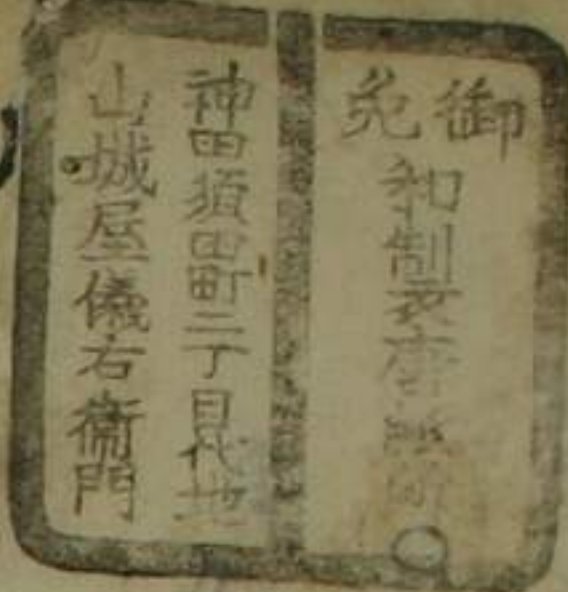 御免
和制
神田須田町二丁目代地
山城屋儀右衞門